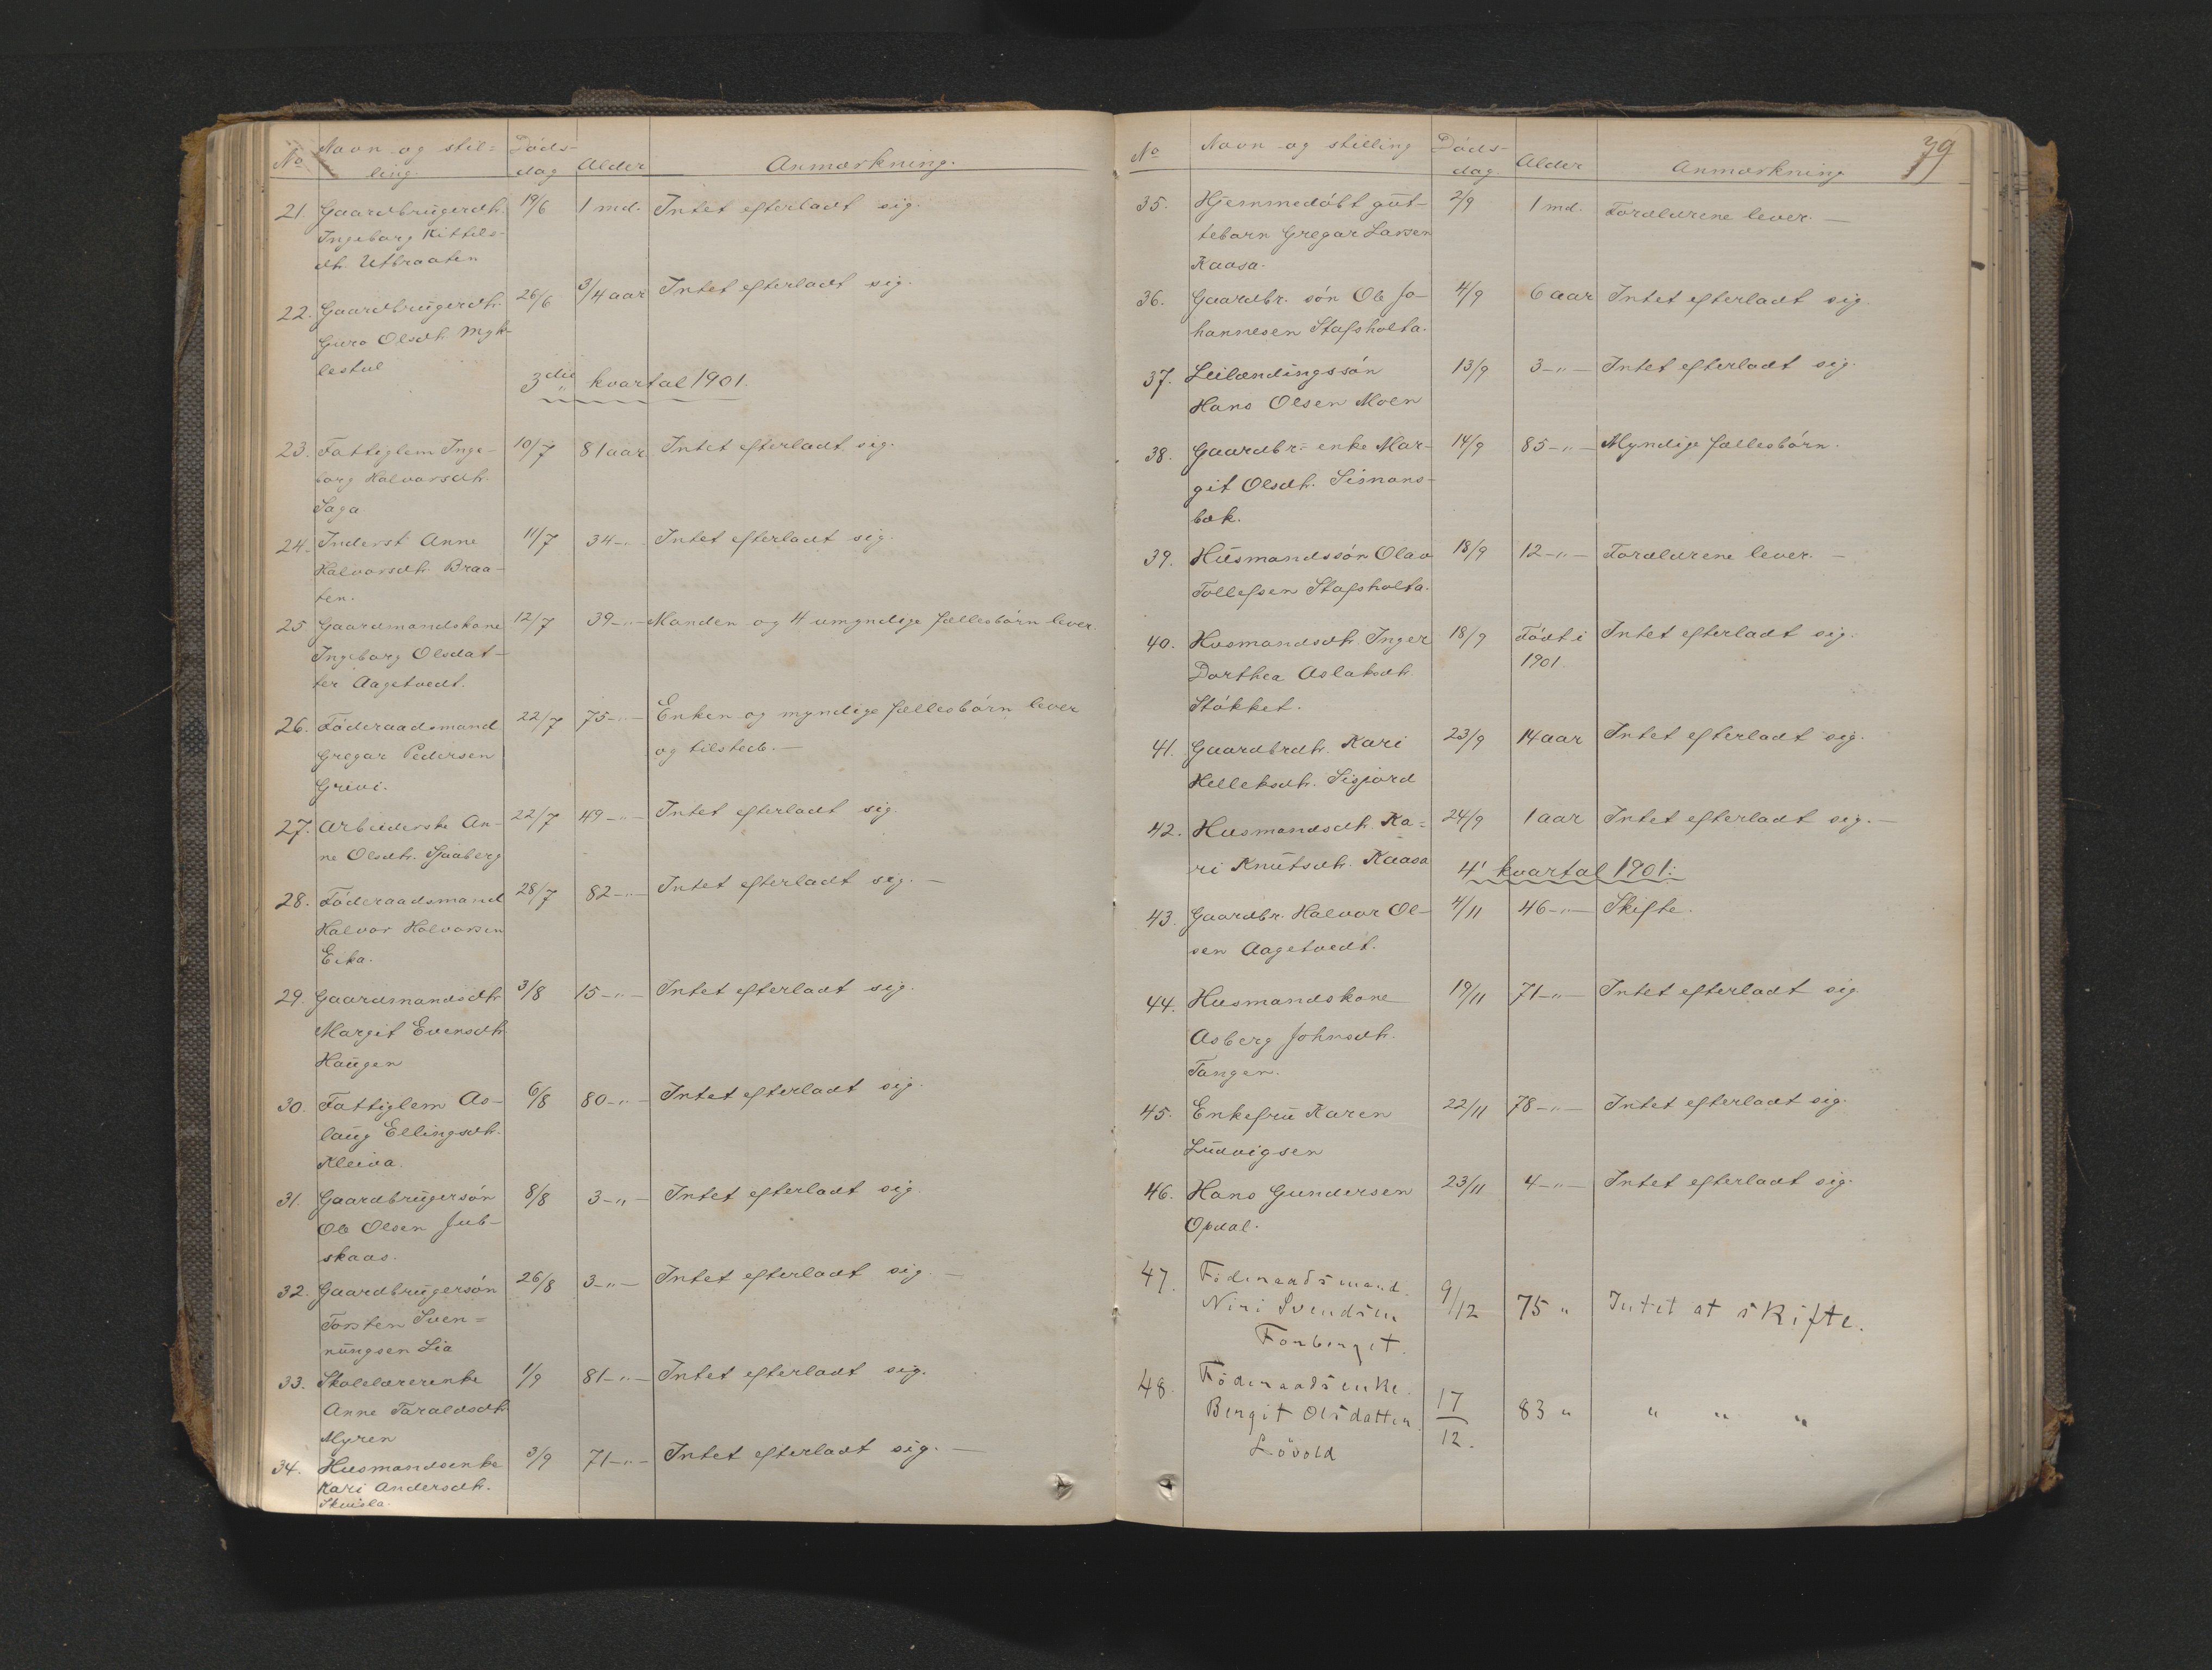 No Navn og stil= Döds- Alder Anmærkning.
ling. dag
21. Gaardbrugerdtr. 19/6 1 md. Intet efterladt sig.
Ingeborg Kittils-
dtr. Utbraaten
22. Gaardbrugerdtr. 26/6 3/4 aar Intet efterladt sig.
Guro Olsdtr. Myk-
lestul
3die kvartal 1901.
23. Fattiglem Inge- 10/7 81 aar Intet efterladt sig.
borg Halvorsdtr.
Saga
24. Inderst Anne 11/7 34 -„- Intet efterladt sig.
Halvorsdtr. Braa-
ten.
25. Gaardmandskone 12/7 39 -„- Manden og 4 umyndige fællesbörn lever.
Ingeborg Olsdat-
ter Aagetvedt.
26. Föderaadsmand 22/7 75 -„- Enken og myndige fællesbörn lever
Gregar Pedersen og tilstede. —
Grivi.
27. Arbeiderske An- 22/7 49 -„- Intet efterladt sig.
ne Olsdtr. Sjaaberg
28. Föderaadsmand 28/7 82 -„- Intet efterladt sig. —
Halvor Halvorsen
Eika.
29. Gaardmandsdtr. 3/8 15 -„- Intet efterladt sig.
Margit Evensdtr.
Haugen
30. Fattiglem As- 6/8 80 -„- Intet efterladt sig.
laug Ellingsdtr.
Kleiva.
31. Gaardbrugersön 8/8 3 -„- Intet efterladt sig
Ole Olsen Jub-
skaas.
32. Gaardbrugersön 26/8 3 -„- Intet efterladt sig. —
Torsten Sven=
nungsen Lia
33. Skolelærerenke 1/9 81 -„- Intet efterladt sig.
Anne Taraldsdtr.
Myren
34. Husmandsenke 3/9 71 -„- Intet efterladt sig. —
Kari Andersdtr.
39
No Navn og stilling Döds- Alder Anmærkning
dag.
35. Hjemmedöbt gut- 2/9 1 md. Forældrene lever. —
tebarn Gregar Larsen
Kaasa.
36. Gaardbr. sön Ole Jo- 4/9 6 aar Intet efterladt sig.
hannesen Stafsholta.
37. Leilændingssön 13/9 3 -„- Intet efterladt sig.
Hans Olsen Moen
38. Gaardbr.= enke Mar- 14/9 85 -„- Myndige fællesbörn.
git Olsdtr. Simons-
bæk.
39. Husmandssön Olav 18/9 12 -„- Forældrene lever. —
Tollefsen Stafsholta.
40. Husmandsdtr. Inger 18/9 Födt i Intet efterladt sig.
Dorthea Aslaksdtr. 1901.
Stökket.
41. Gaardbrdtr. Kari 23/9 14 aar Intet efterladt sig.
Helleksdtr. Sisjord
42. Husmandsdtr. Ka= 24/9 1 aar Intet efterladt sig. —
ri Knutsdtr. Kaasa
4' kvartal 1901:
43. Gaardbr. Halvor Ol- 4/11 46 -„- Skifte.
sen Aagetvedt.
44. Husmandskone 19/11 71 -„- Intet efterladt sig
Asberg Johnsdtr.
Tangen.
45. Enkefru Karen 22/11 78 -„- Intet efterladt sig.
Ludvigsen
46. Hans Gundersen 23/11 4 -„- Intet efterladt sig.
Opdal.
47. Föderaadsmand.
Niri Svendsen 9/12 75 „ Intet at skifte.
Forberget.
48. Föderaadsenke.
Bergit Olsdatter 17/12. 83 „ „ „ „
Lövold